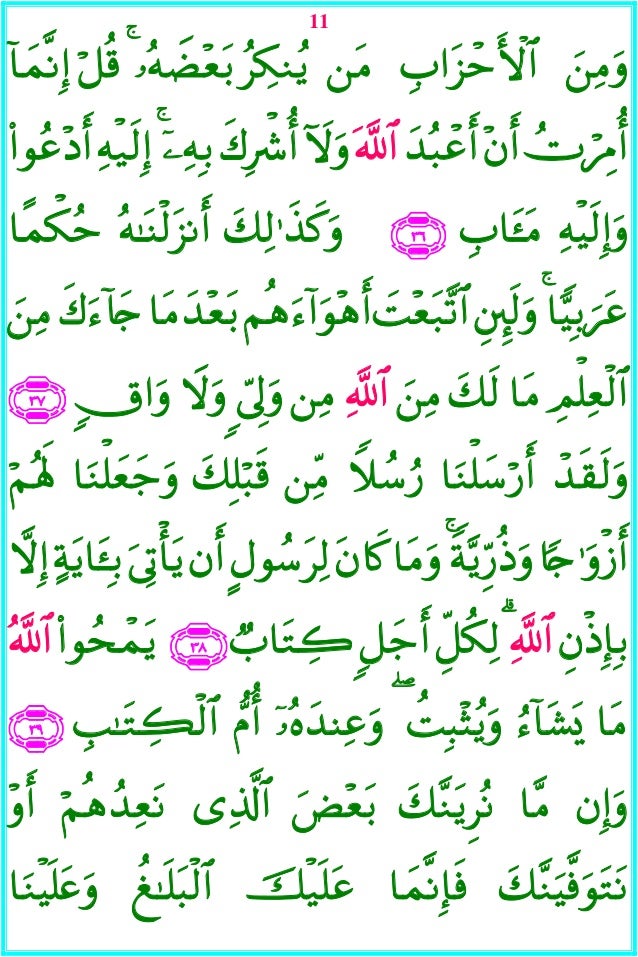 11
وَمِنَ ٱلْأَحْزَابِ مَن يُنكِرُ بَعْضَهُۥ ۚ قُلْ إِنَّمَآ
أُمِرْتُ أَنْ أَعْبُدَ ٱللَّهَ وَلَآ أُشْرِكَ بِهِۦٓ ۚ إِلَيْهِ أَدْعُوا۟
وَإِلَيْهِ مَـَٔابِ ٣٦ وَكَذَٰلِكَ أَنزَلْنَـٰهُ حُكْمًا
عَرَبِيًّا ۚ وَلَئِنِ ٱتَّبَعْتَ أَهْوَآءَهُم بَعْدَ مَا جَآءَكَ مِنَ
ٱلْعِلْمِ مَا لَكَ مِنَ ٱللَّهِ مِن وَلِىٍّ وَلَا وَاقٍ ٣٧
وَلَقَدْ أَرْسَلْنَا رُسُلًا مِّن قَبْلِكَ وَجَعَلْنَا لَهُمْ
أَزْوَٰجًا وَذُرِّيَّةً ۚ وَمَا كَانَ لِرَسُولٍ أَن يَأْتِىَ بِـَٔايَةٍ إِلَّا
بِإِذْنِ ٱللَّهِ ۗ لِكُلِّ أَجَلٍ كِتَابٌ ٣٨ يَمْحُوا۟ ٱللَّهُ
مَا يَشَآءُ وَيُثْبِتُ ۖ وَعِندَهُۥٓ أُمُّ ٱلْكِتَـٰبِ ٣٩
وَإِن مَّا نُرِيَنَّكَ بَعْضَ ٱلَّذِى نَعِدُهُمْ أَوْ
نَتَوَفَّيَنَّكَ فَإِنَّمَا عَلَيْكَ ٱلْبَلَـٰغُ وَعَلَيْنَا